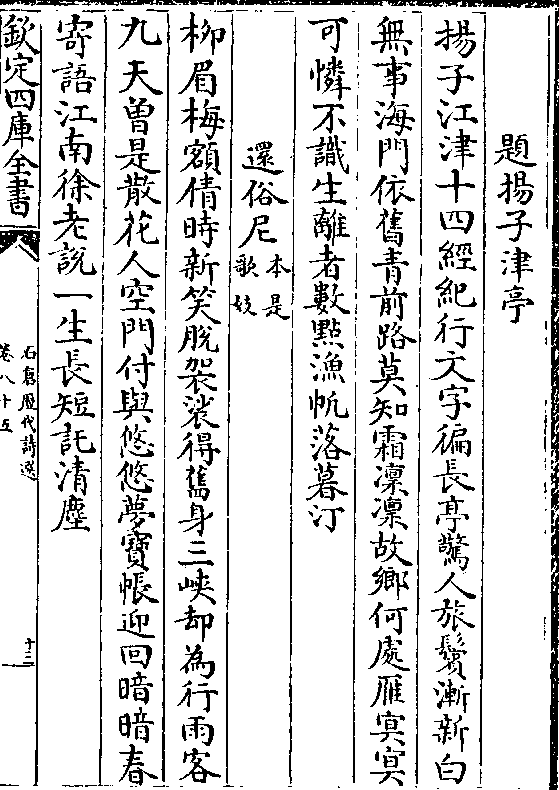 題揚子津亭
揚子江津十四經紀行文字徧長亭驚人旅鬢漸新白
無事海門依舊青前路莫知霜凛凛故鄉何處雁㝠㝠
可憐不識生離者數點漁帆落暮汀
還俗尼本是歌妓
柳眉梅額倩時新笑脫袈裟得舊身三峽却為行雨客
九天曽是散花人空門付與悠悠夢寶帳迎回暗暗春
寄語江南徐老說一生長短託清塵
欽定四庫全書
石倉歷代詩選
卷八十五
十三